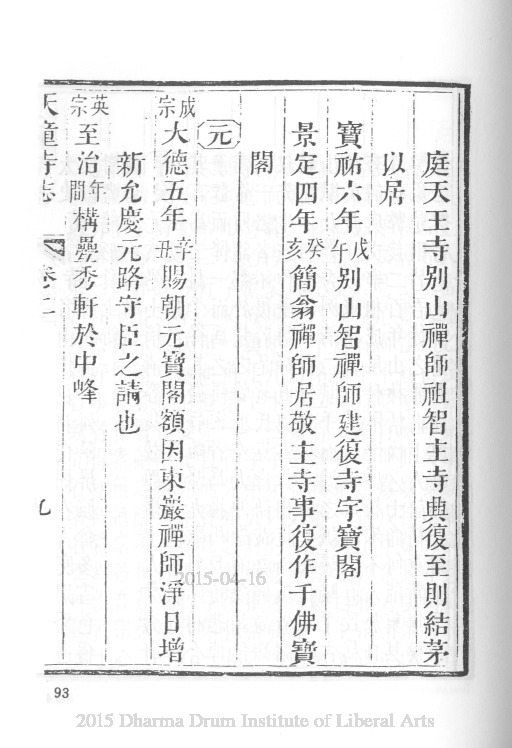 庭天王寺別山禪師祖智主寺典復至則結茅
以居
寶祐六年戊午別山智禪師建復寺宇寶閣
景定四年癸亥簡翁禪師居敬主寺事復作千佛寶
閣
元
成宗大德五年辛丑賜朝元寶閣額因東巖禪師淨日增
新允慶元路守臣之請也
英宗至治年間構疊秀軒於中峰
天童寺志
卷二
九
2015-04-16
93
2015 Dharma Drum Institute of Liberal Arts